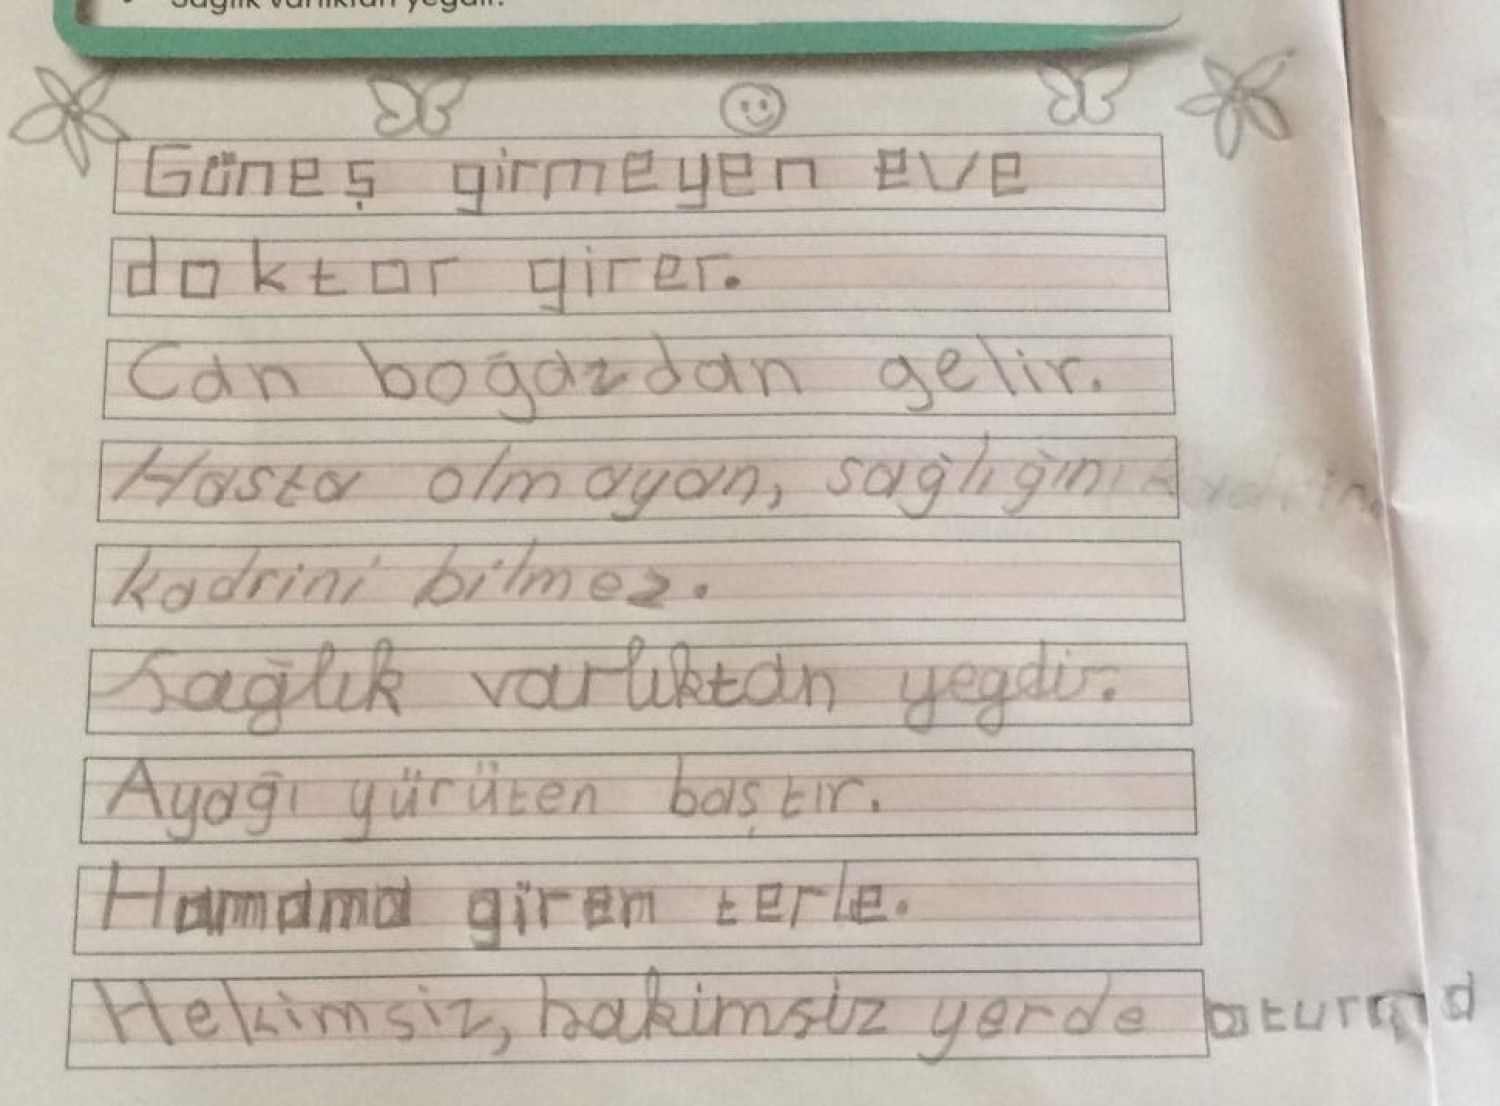 Sağlık varlıktan yeğdir.
Güneş girmeyen eve
doktor girer.
Can boğazdan gelir.
Hasta olmayan, sağlığını
kadrini bilmez.
Sağlık varlıktan yegdir.
Ayağı yürüten baştır.
Hamama giren terle.
Hekimsiz, hakimsiz yerde oturma